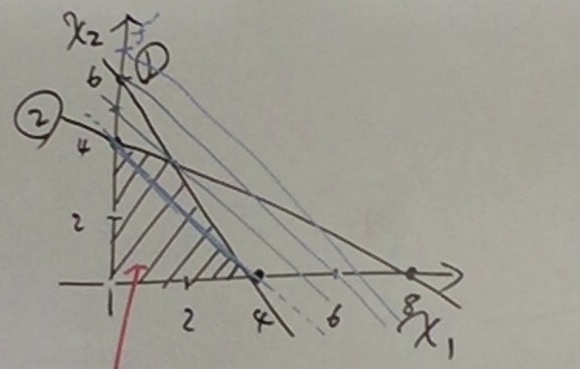 x₂
6 ①
②
4
2
2 4 6 8 x₁